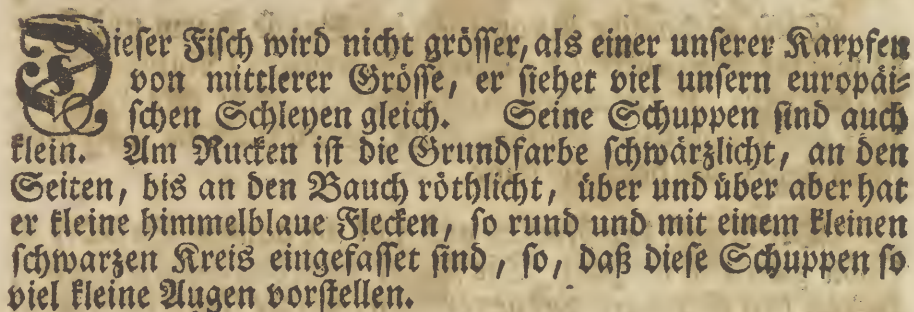 Dieser Fisch wird nicht grösser, als einer unserer Karpfen
von mittlerer Grösse, er siehet viel unsern europäi-
schen Schleyen gleich. Seine Schuppen sind auch
klein. Am Rucken ist die Grundfarbe schwärzlicht, an den
Seiten, bis an den Bauch röthlicht, über und über aber hat
er kleine himmelblaue Flecken, so rund und mit einem kleinen
schwarzen Kreis eingefasset sind, so, daß diese Schuppen so
viel kleine Augen vorstellen.